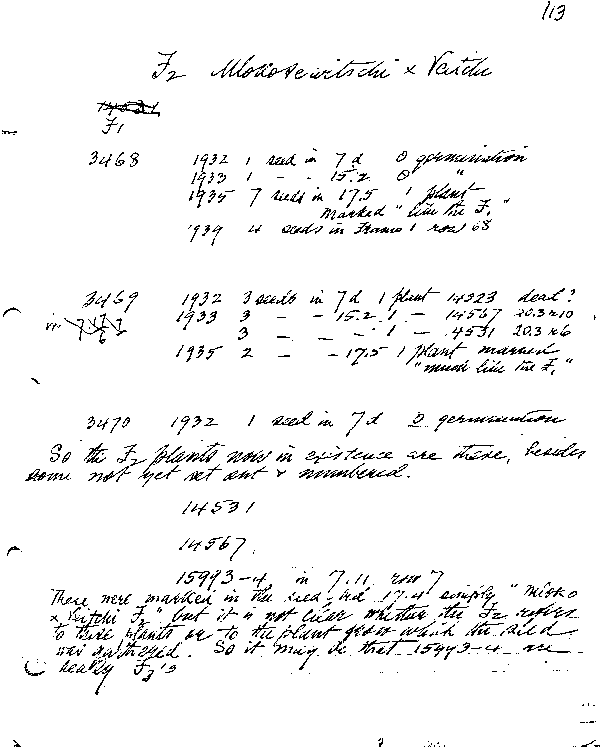 113
F2 Mlokosewitschi x Veitchi
14531
F1
3468 1932 1 seed in 7d 0 germination
1933 1 - - 15.2 0 "
1935 7 seeds in 17.5 1 plant
marked "like the F1"
1939 4 seeds in Frame 1 row 68
3469 1932 3 seeds in 7d 1 plant 14523 dead?
1933 3 - - 15.2 1 - 14567 20.3 r10
3 - - - 1 - 4531 20.3 r6
1935 2 - - 17.5 1 plant marked
"much like the F1"
3470 1932 1 seed in 7d 0 germination
So the F2 plants now in existence are these, besides
some not yet set out & numbered.
14531
14567
15993-4 in 7.11 row 7
These were marked in the seed bed 17.4 simply "Mloko
x Veitchi F2" but it is not clear whether the F2 refers
to these plants or to the plant from which the seed
was gathered. So it may be that 15993-4 are
really F3's